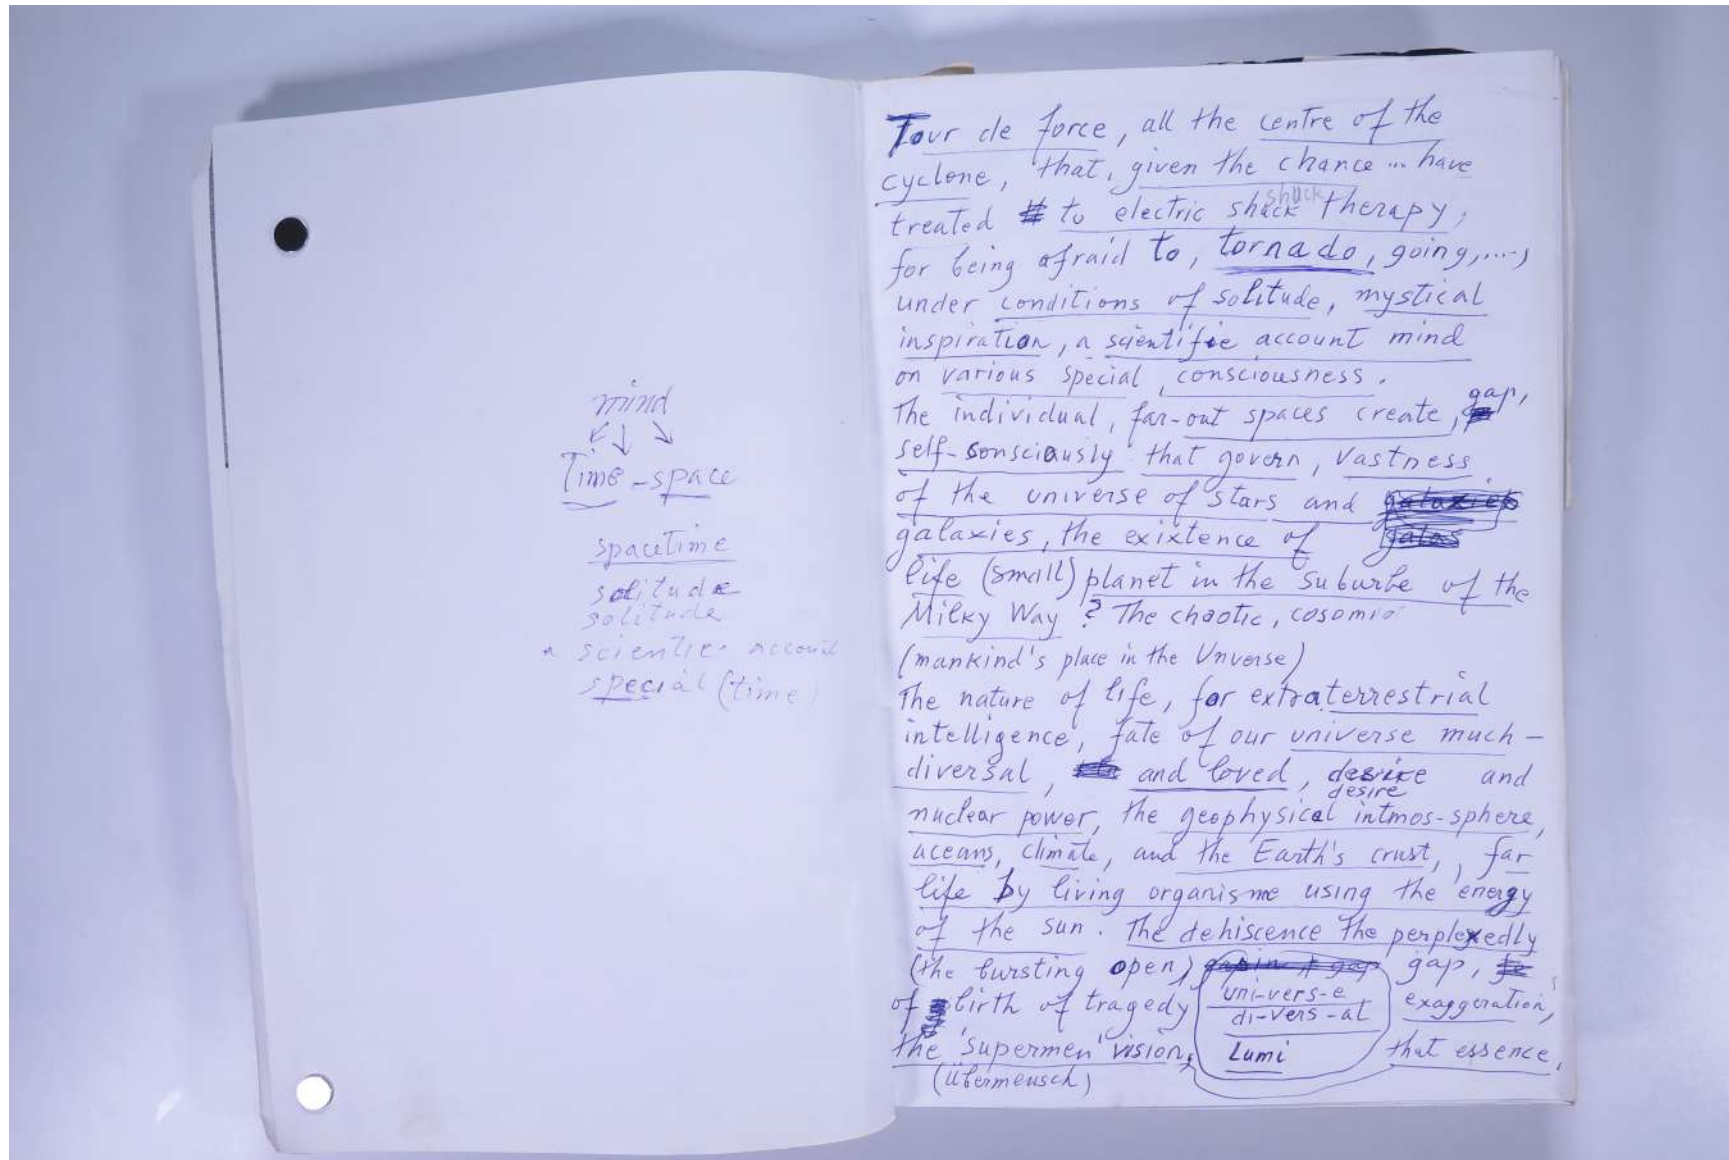 mind
Time - space
spacetime
solitude
solitude
a scientic account
special (time)
Tour de force, all the centre of the
cyclone, that, given the chance ... have
treated to electric shack shuck therapy,
for being afraid to, tornado, going,....,
under conditions of solitude, mystical
inspiration, a scientific account mind
on various special, consciousness.
The individual, far-out spaces create, gap,
self-consciously that govern, vastness
of the universe of stars and galaxies
galaxies, the existence of galas
life (small) planet in the suburbe of the
Milky Way? The chaotic, cosomic
(mankind's place in the Unverse)
The nature of life, for extraterrestrial
intelligence, fate of our universe much-
diversal, and loved, desire and
desire
nuclear power, the geophysical intmos-sphere,
aceans, climate, and the Earth's crust,, far
life by living organisme using the energy
of the sun. The dehiscence the perplexedly
(the bursting open) gap,
of birth of tragedy uni-vers-e exaggeration,
di-vers-al
the 'supermen' vision, Lumi that essence,
(Übermensch)